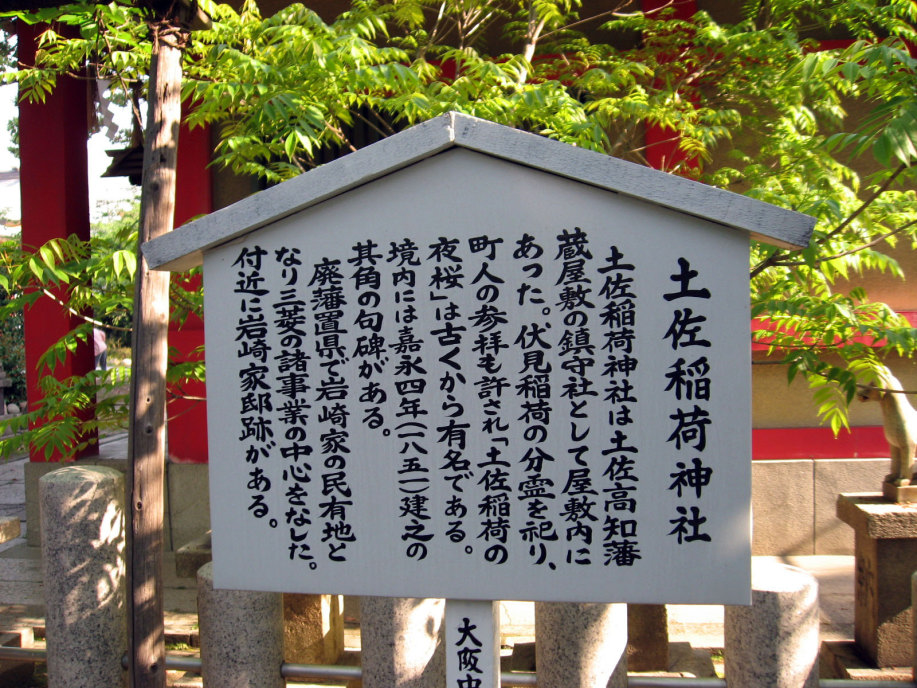 土佐稲荷神社
土佐稲荷神社は土佐高知藩
蔵屋敷の鎮守社として屋敷内に
あった。伏見稲荷の分霊を祀り、
町人の参拝も許され「土佐稲荷の
夜桜」は古くから有名である。
境内には嘉永四年(一八五一)建之の
其角の句碑がある。
廃藩置県で岩崎家の民有地と
なり三菱の諸事業の中心をなした。
付近に岩崎家邸跡がある。
大阪市